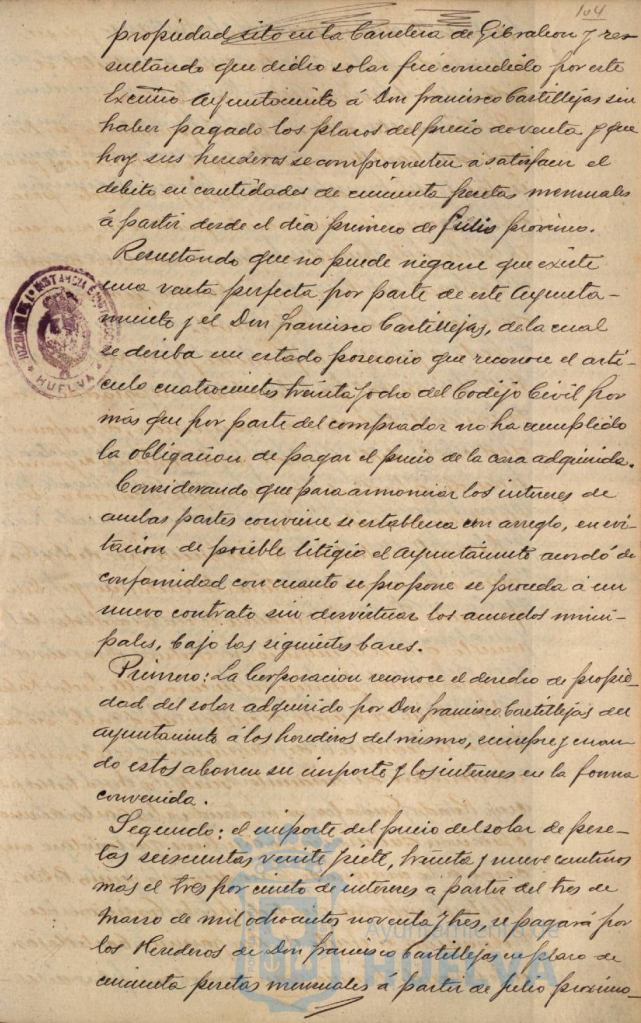 104
propiedad sito en la Carretera de Gibraleon y re-
sultando que dicho solar fué concedido por este
Excmo Ayuntamiento á Don Francisco Castillejas sin
haber pagado los plazos del precio de venta y que
hoy sus herederos se comprometen a satisfacer el
debito en cantidades de cincuenta pesetas mensuales
á partir desde el dia primero de Julio proximo.
Resultando que no puede negarse que existe
una venta perfecta por parte de este Ayunta-
miento y el Don Francisco Castillejas, de la cual
se deriba un estado posesorio que reconoce el artí-
culo cuatrocientos treinta y ocho del Codijo Civil por
más que por parte del comprador no ha cumplido
la obligacion de pagar el precio de la cosa adquirida.
Considerando que para armonizar los intereses de
ambas partes conviene se establezca un arreglo, en evi-
tacion de posible litigio el Ayuntamiento acordó de
conformidad con cuanto se propone se proceda á un
nuevo contrato sin desvirtuar los acuerdos muni-
pales, bajo las siguientes bases.
Primero: La Corporacion reconoce el derecho de propie-
dad del solar adquirido por Don Francisco Castillejas del
ayuntamiento á los herederos del mismo, siempre y cuan-
do estos abonen su importe y los intereses en la forma
convenida.
Segundo: el importe del precio del solar de pese-
tas seiscientas veinte y siete, treinta y nueve centimos
más el tres por ciento de interes a partir del tres de
Marzo de mil ochocientos noventa y tres, se pagará por
los Herederos de Don Francisco Castillejas en plazo de
cincuenta pesetas mensuales á partir de Julio proximo
HUELVA
Ayuntamiento de
HUELVA